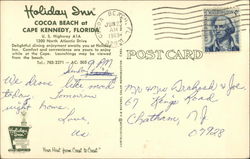 Holiday Inn
COCOA BEACH at
CAPE KENNEDY, FLORIDA
U. S. Highway A1A
1300 North Atlantic Drive
Delightful dining enjoyment awaits you at Holiday
Inn. Comfort and convenience are yours to enjoy
while at the Cape. Launchings may be viewed
from the beach.
Tel. 783-2271 - A/C 305
POST CARD
9 PM
Sunday
We drove like mad
today. Tomorrow
night home.
Love,
Mr. & Mrs
67
Chatham, NJ
07928
Holiday Inn
Your Host from Coast to Coast